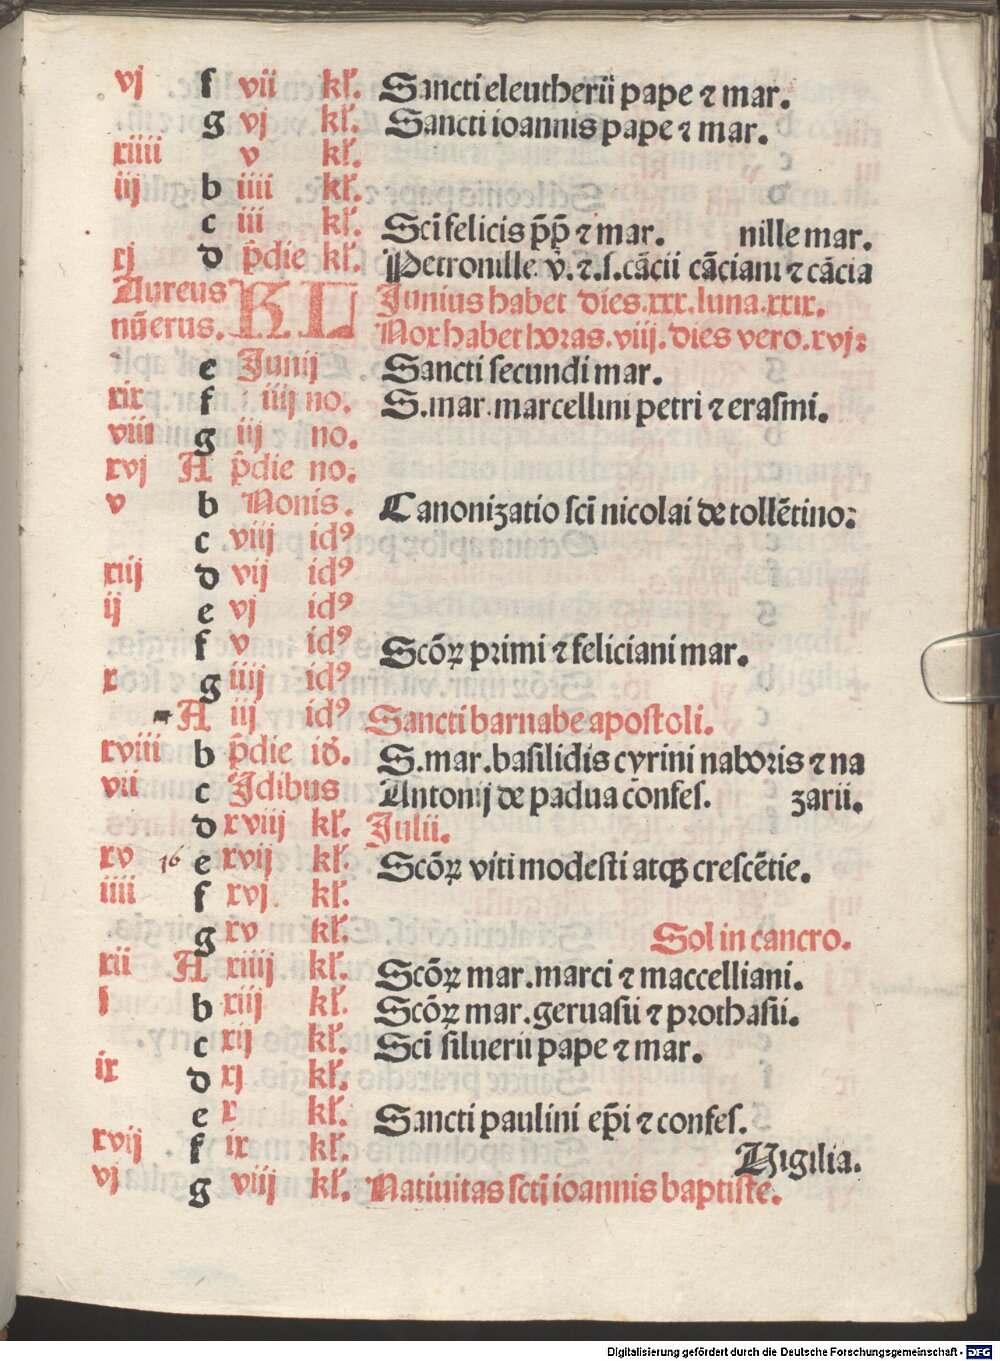 vj f vii kł. Sancti eleutherii pape ⁊ mar.
g vj kł. Sancti ioannis pape ⁊ mar.
xiiii v kł.
iij b iiii kł.
c iii kł. Scī felicis p̄p̄ ⁊ mar. nille mar.
xj d p̄die kł. Petronille v̄. ⁊.s. cācii cāciani ⁊ cācia
Aureus KL Junius habet dies.xxx.luna.xxix.
nūerus. Nox habet horas.viij.dies vero.xvj:
e Junij Sancti secundi mar.
xix f iiij no. S.mar.marcellini petri ⁊ erasmi.
viii g iij no.
xvj A p̄die no.
v b Nonis. Canonizatio scī nicolai de tollētino:
c viij idꝰ
xiij d vij idꝰ
ij e vj idꝰ
f v idꝰ Scōꝝ primi ⁊ feliciani mar.
x g iiij idꝰ
A iij idꝰ Sancti barnabe apostoli.
xviii b p̄die id. S.mar.basilidis cyrini naboris ⁊ na
vii c Jdibus Antonij de padua confes. zarii.
d xviij kł. Julii.
xv 16 e xvij kł. Scōꝝ viti modesti atqꝫ crescētie.
iiii f xvj kł.
g xv kł. Sol in cancro.
xii A xiiij kł. Scōꝝ mar.marci ⁊ maccelliani.
j b xiij kł. Scōꝝ mar.geruasii ⁊ prothasii.
c xij kł. Scī siluerii pape ⁊ mar.
ix d xj kł.
e x kł. Sancti paulini ep̄i ⁊ confes.
xvij f ix kł. Uigilia.
vj g viij kł. Natiuitas sctī ioannis baptiste.
Digitalisierung gefördert durch die Deutsche Forschungsgemeinschaft - DFG